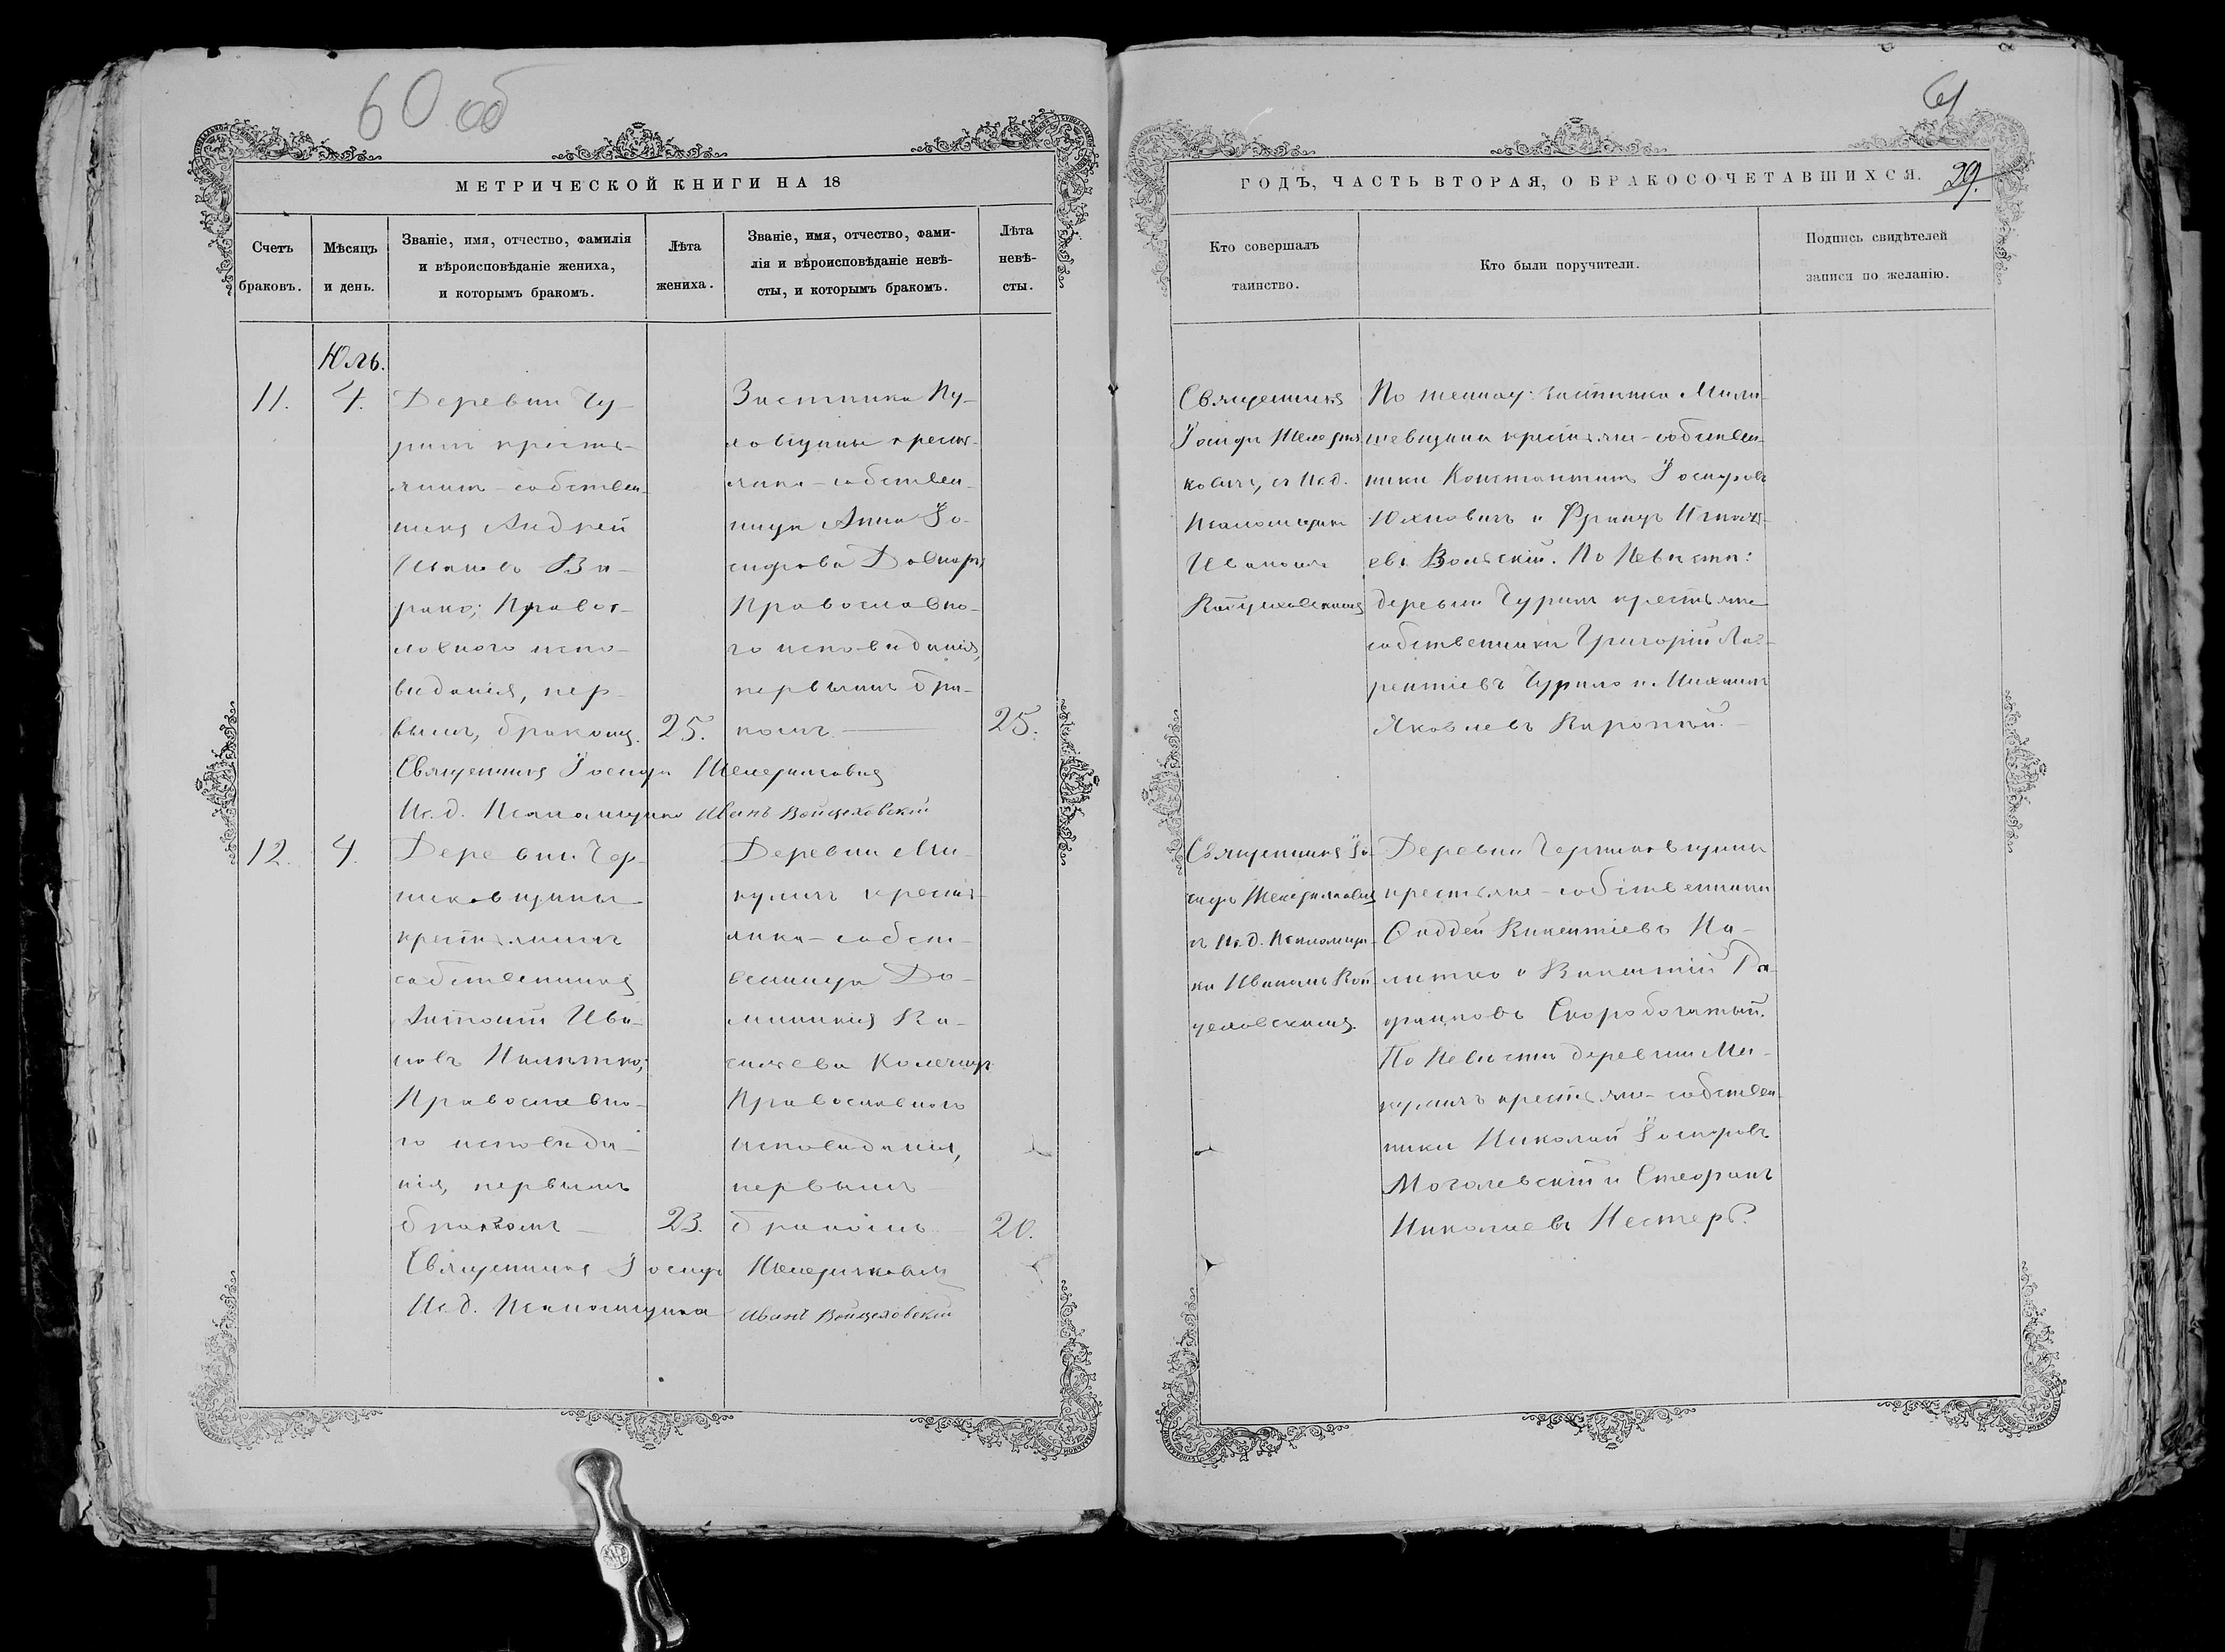 60 об
МЕТРИЧЕСКОЙ КНИГИ НА 18
Счетъ
браковъ.
Мѣсяцъ
и день.
Званіе, имя, отчество, фамилія
и вѣроисповѣданіе жениха,
и которымъ бракомъ.
Лѣта
жениха.
Званіе, имя, отчество, фами-
лія и вѣроисповѣданіе невѣ-
сты, и которымъ бракомъ.
Лѣта
невѣ-
сты.
Юль.
11.
4.
Деревни Чу-
рилъ крестья-
нинъ-собствен-
никъ Андрей
Ивановъ
Правос-
лавнаго испо-
вѣданія, пер-
вымъ, бракомъ.
25.
Застѣнка Пу-
крестья-
янка-собствен-
ница Анна Іо-
сифова Довнаръ,
Православна-
го исповѣданія,
первымъ бра-
комъ —
25.
Священникъ Іосифъ
Ис.д. Псаломщика Иванъ Войцеховскій
12.
4.
Деревни Чер-
никовщины
крестьянинъ
собственникъ
Антоній Ива-
новъ
Православна-
го исповѣда-
нія, первымъ
бракомъ —
23.
Деревни Ми-
куличъ крестья-
янка-собст-
венница До-
миникія Ва-
сильева
Православнаго
исповѣданія,
первымъ
бракомъ —
20.
Священникъ Іосифъ
Ис.д. Псаломщика Иванъ Войцеховскій
61
29.
ГОДЪ, ЧАСТЬ ВТОРАЯ, О БРАКОСОЧЕТАВШИХСЯ.
Кто совершалъ
таинство.
Кто были поручители.
Подпись свидѣтелей
записи по желанію.
Священникъ
Іосифъ
съ Ис.д.
Псаломщика
Иваномъ
Войцеховскимъ
По женихѣ: застѣнка Мили-
шевщина крестьяне-собствен-
ники Константинъ Іосифовъ
Юхновичъ и Францъ Игнать-
евъ Вольскій. По Невѣстѣ:
деревни Чурилъ крестьяне
собственники Григорій Лав-
рентіевъ Чурило и Михаилъ
Яковлевъ
Священникъ Іо-
сифъ
съ Ис.д. Псаломщи-
ка Иваномъ Вой-
цеховскимъ.
Деревни Черниковщины
крестьяне-собственники
Фаддей Викентіевъ
и Викентій
Скоробогатый.
По Невѣстѣ деревни Ми-
куличъ крестьяне-собствен-
ники Николай Іосифовъ
Могалевскій и Стефанъ
Николаевъ Нестеръ.